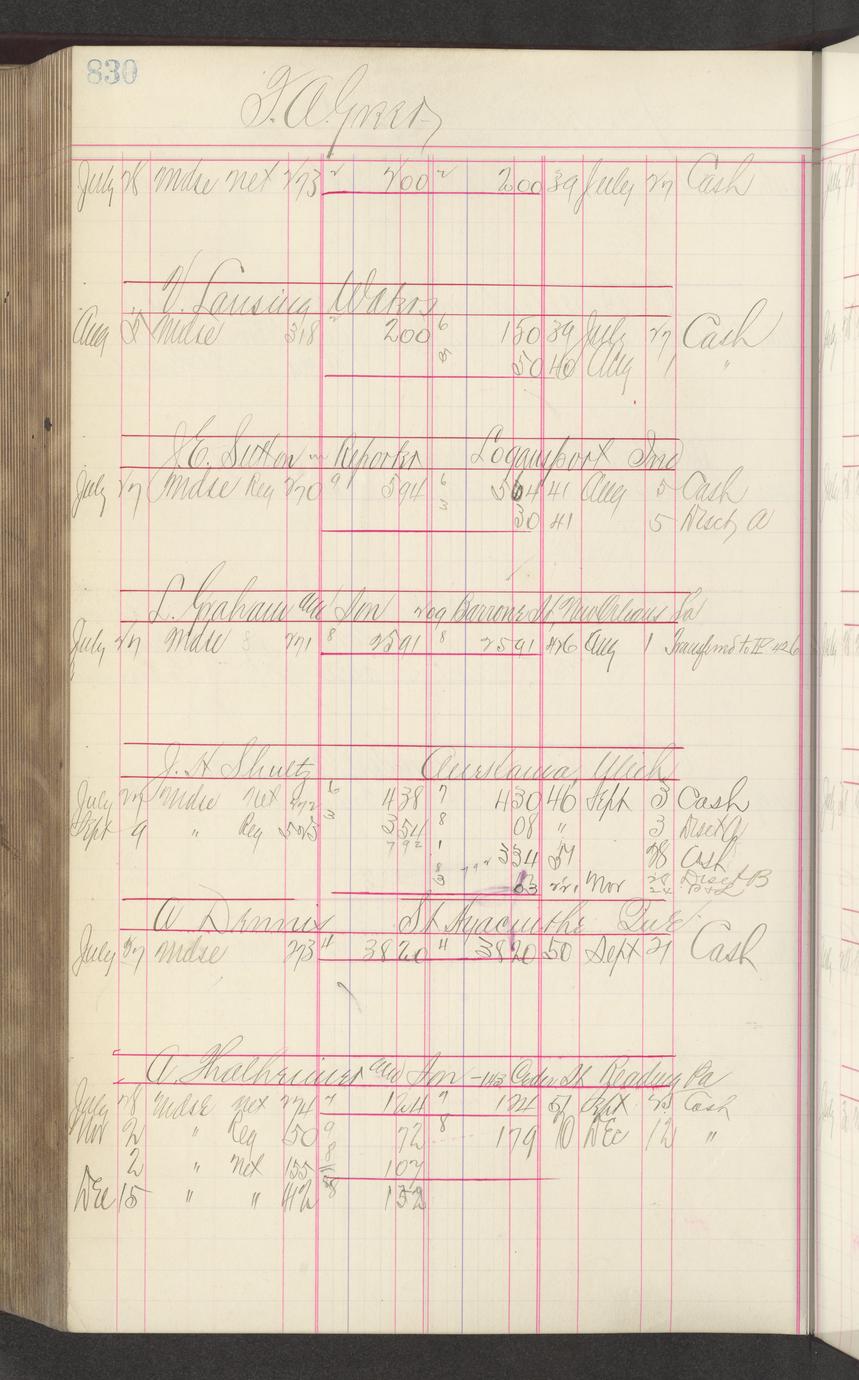 830
F. A. Green
July 28 Mdse net 273 2 200 2 200 39 July 27 Cash
V. Lansing
Aug 5 Mdse 318 2 200 6 150 39 July 27 Cash
5 50 40 Aug 1 "
J. E. Sutton Reporter Logansport Ind
July 27 Mdse Reg 270 9 594 6 564 41 Aug 5 Cash
3 30 41 5 Disct A
L. Graham and Son 209 Barrone St, New Orleans La
July 27 Mdse 271 8 2591 8 2591 426 Aug 1 Transferred to IV 426
J. H. Shultz Mich
July 27 Mdse net 272 6 438 7 430 46 Sept 3 Cash
Sept 9 " Reg 505 3 354 8 08 " 3 Disct A
792 1 334 57 28 Cash
8 792 Nov 28 Disct B
3 03 221 24 P&L
A Dennis St Hyacinthe Que
July 27 Mdse 273 11 3820 11 3820 50 Sept 21 Cash
A. Thalheimer and Son - 143 Cedar St Reading Pa
July 28 Mdse net 274 7 124 7 124 51 Sept 25 Cash
Nov 2 " Reg 150 9 72 8 179 70 Dec 12 "
2 " Net 155 8 107
Dec 15 " " 412 8 152